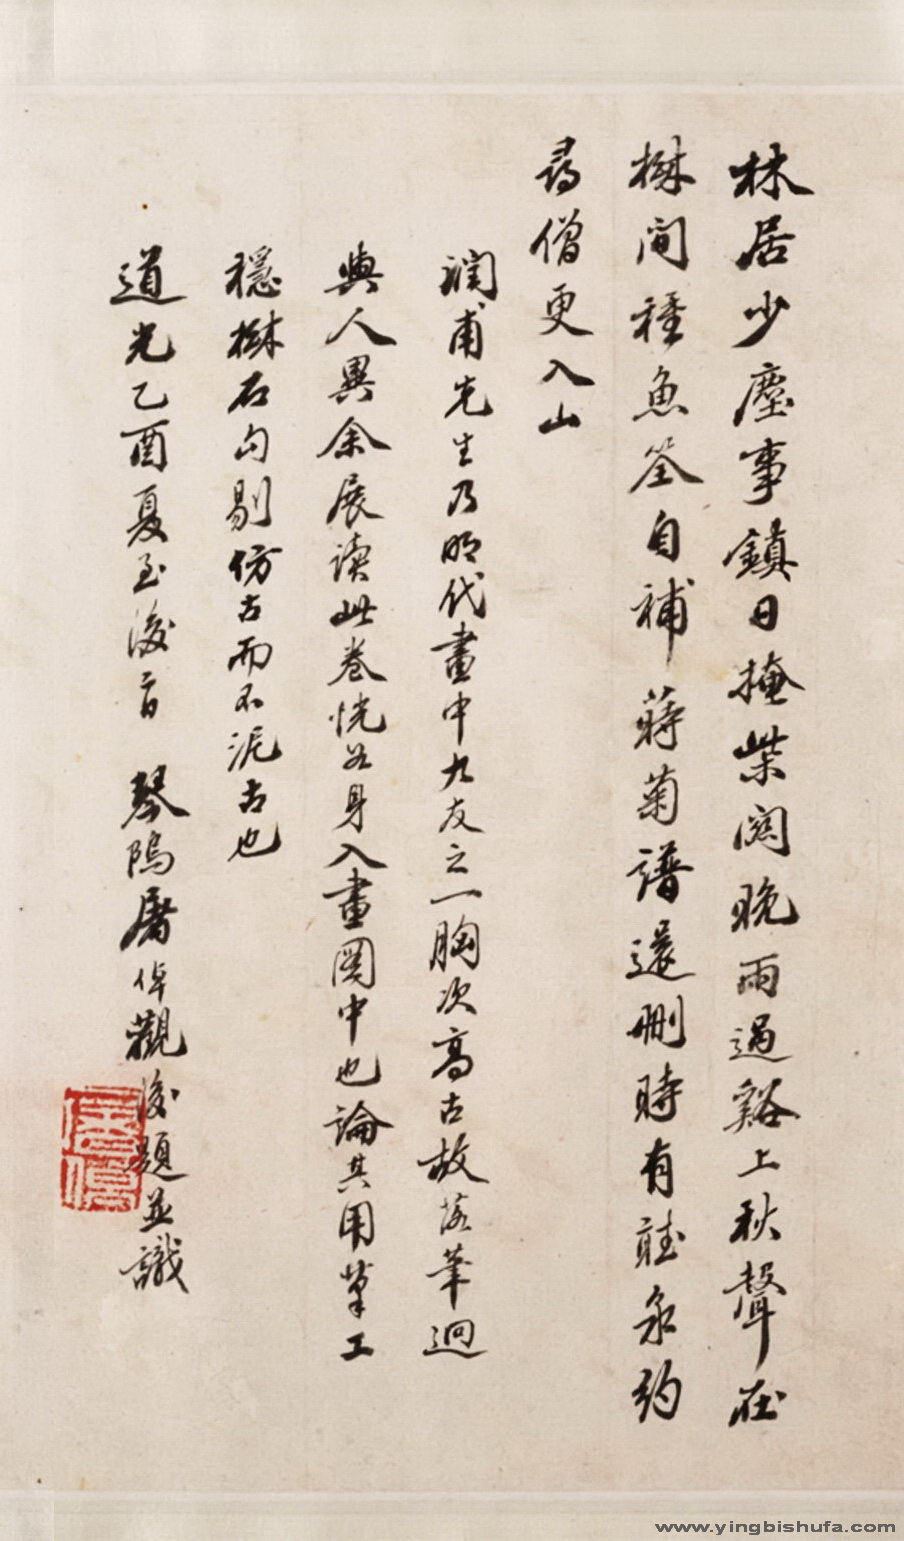 林居少塵事鎮日掩柴関晚雨過谿上秋聲在
樹間種魚筌自補蒔菊譜還刪時有求約
尋僧更入山
潤甫先生乃明代畫中九友之一胸次高古故落筆迥
與人異余展讀此卷恍若身入畫圖中也論其用筆工
穩樹石勾剔仿古而不泥古也
道光乙酉夏至後二日 琴隖屠倬觀後題並識
www.yingbishufa.com